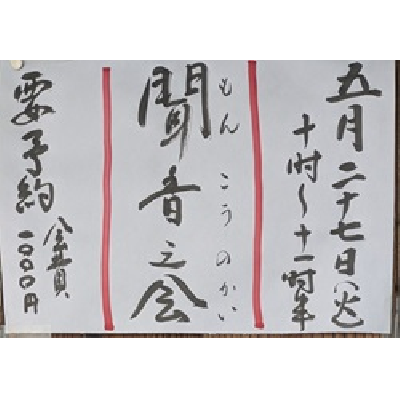 五月二十七日(火)
十時～十一時半
もんこうのかい
聞香之会
要予約
会費
一000円